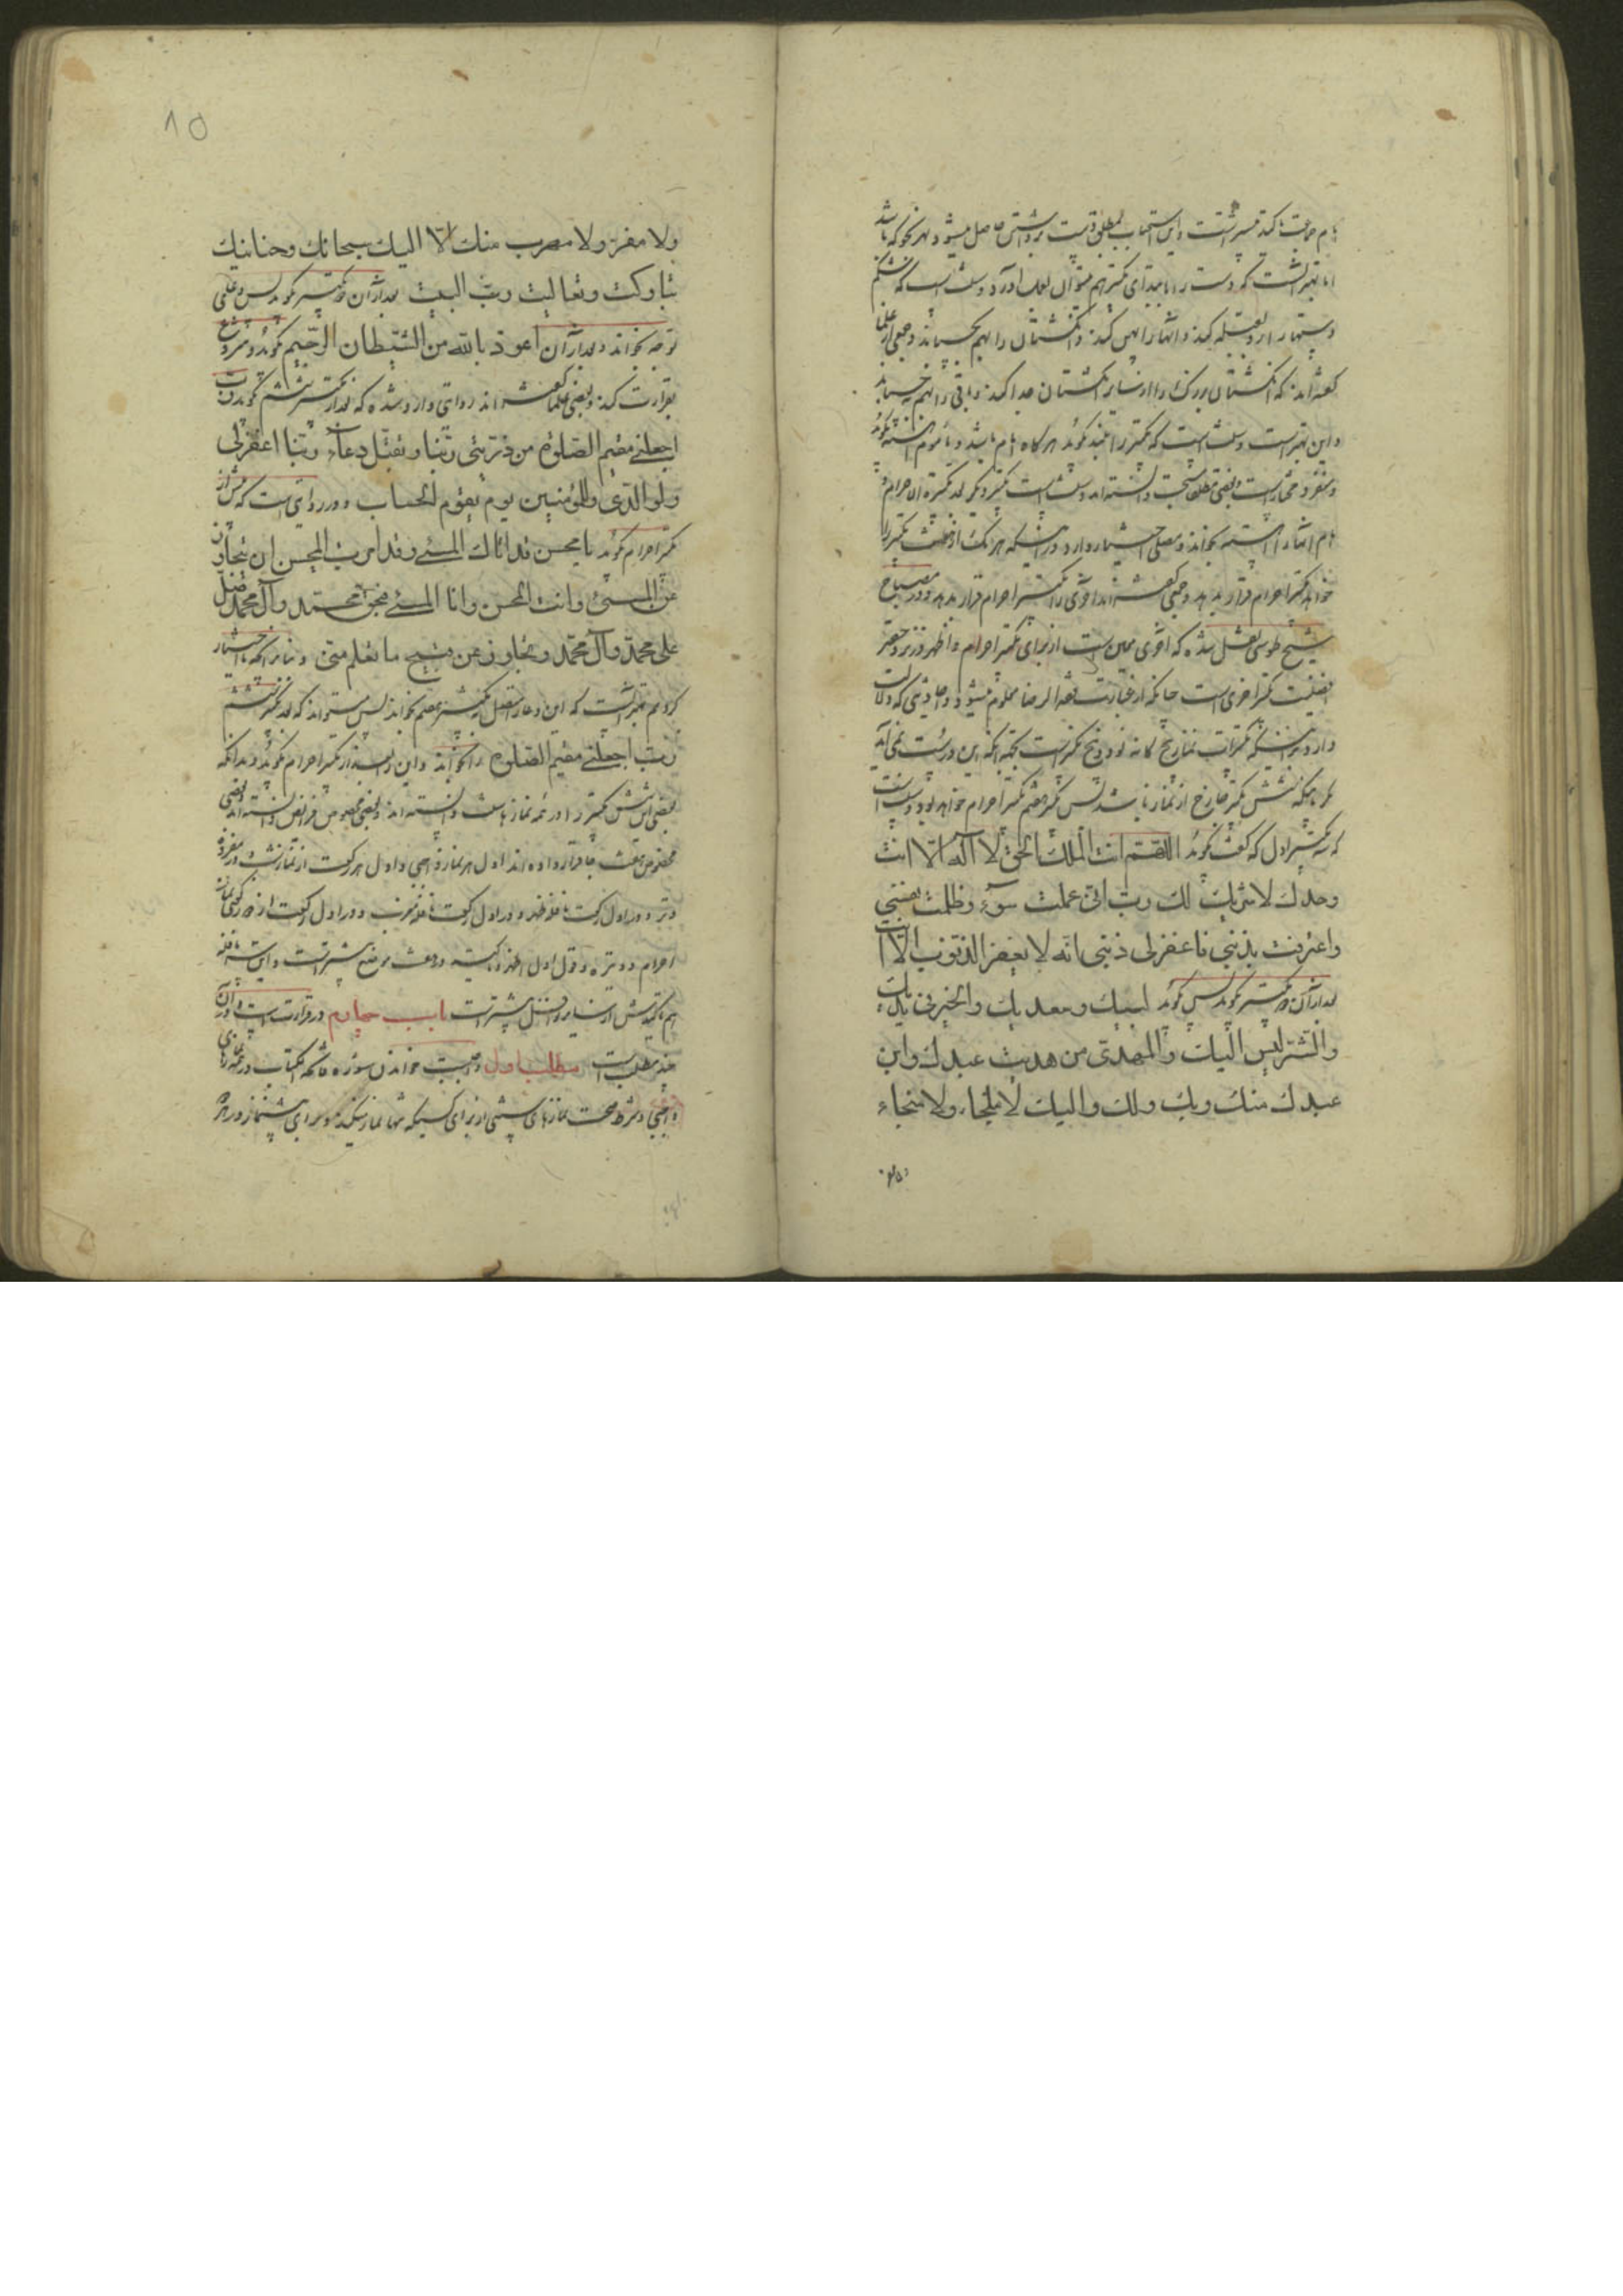 امام جماعت تاکیدش بیشتر است و این استحباب بمطلق دست برداشتن حاصل میشود بهر نحو که باشد
اما بهتر آنست که دست را با ابتدای تکبیر بهم متوال بعمل آورد و سنت است که شکم
دستها را رو بقبله کند و انگشتان را بهم بچسباند و جمعی از علما
گفته‌اند که انگشتان بزرگ را از سایر انگشتان جدا کند و باقی را بهم بچسباند
و این بهتر است و سنت است که تکبیر را بلند گوید هرگاه امام باشد و مأموم آهسته گوید
و منفرد مخیر است و بعضی مطلقا مستحب دانسته‌اند و سنت است شش تکبیر دیگر بغیر تکبیرة الاحرام و
امام آنها را آهسته بخواند و مصلی اختیار دارد در اینکه هر یک از هفت تکبیر را
خواهد تکبیر احرام قرار بدهد و جمعی گفته‌اند آخری را تکبیر احرام قرار بدهد و در مصباح
شیخ طوسی نقل شده که آخری معین است از برای تکبیر احرام و اظهر در نزد حقیر
افضلیت تکبیر آخری است چنانکه از عبارت فقه الرضا معلوم میشود و احادیثی که دلالت
دارد بر اینکه تکبیرات نماز پنج گانه نود و پنج تکبیر است بجهة آنکه این درست نمی‌آید
مگر به اینکه شش تکبیر خارج از نماز باشد پس تکبیر هفتم تکبیر احرام خواهد بود و سنت است
که سه تکبیر اول که گفت بگوید اللهم انت الملك الحق لا اله الا انت
وحدك لا شریك لك رب انی عملت سوء وظلمت نفسی
واعترفت بذنبی فاغفرلی ذنبی انه لا یغفر الذنوب الا انت
بعد از آن دو تکبیر بگوید پس بگوید لبیك وسعدیك والخیر فی یدیك
والشر لیس الیك والمهدی من هدیت عبدك وابن
عبدك منك وبك ولك والیك لا ملجاء ولا منجاء
ولا مفر ولا مهرب منك الا الیك سبحانك وحنانیك
تبارکت وتعالیت رب البیت بعد از آن دو تکبیر بگوید پس دعای
توجه بخواند و بعد از آن اعوذ بالله من الشیطان الرجیم بگوید و شروع
بقرائت کند و بعضی علما گفته‌اند روایتی وارد شده که بعد از تکبیر ششم گوید رب
اجعلنی مقیم الصلوة من ذریتی ربنا وتقبل دعاء ربنا اغفرلی
ولوالدی وللمؤمنین یوم یقوم الحساب و در روایتی است که پیش از
تکبیر احرام گوید یا محسن قد اتاك المسیء وقد امرت المحسن ان یتجاوز
عن المسیء وانت المحسن وانا المسیء فبحق محمد وآل محمد صل
علی محمد وآل محمد وتجاوز عن قبیح ما تعلم منی و بنا بر آنکه ما اختیار
کردیم بهتر آنست که این دعا را قبل تکبیر هفتم بخواند پس میتواند که بعد تکبیر ششم
رب اجعلنی مقیم الصلوة را بخواند و این را بعد از تکبیر احرام بگوید و بدانکه
بعضی این شش تکبیر را در همه نماز سنت دانسته‌اند و بعضی مخصوص فرایض دانسته‌اند و بعضی
مخصوص هفت جا قرار داده‌اند اول هر نماز واجبی و اول هر رکعت از نماز شب و در مفرده
وتر و در اول رکعت نافله ظهر و در اول رکعت نافله مغرب و در اول رکعت از دو رکعت نماز
احرام و وتیره و قول اول اظهر و البته در هفت موضع بیشتر است و این سه نافله
هم تاکیدش از سایر نوافل بیشتر است باب چهارم در قرائت است و در آن
چند مطلب است مطلب اول واجبست خواندن سوره فاتحة الکتاب در همه نمازهای
واجبی و شرط صحت نمازهای سنتی از برای کسیکه تنها نماز میکند و از برای پیشنماز در هر
۱۵